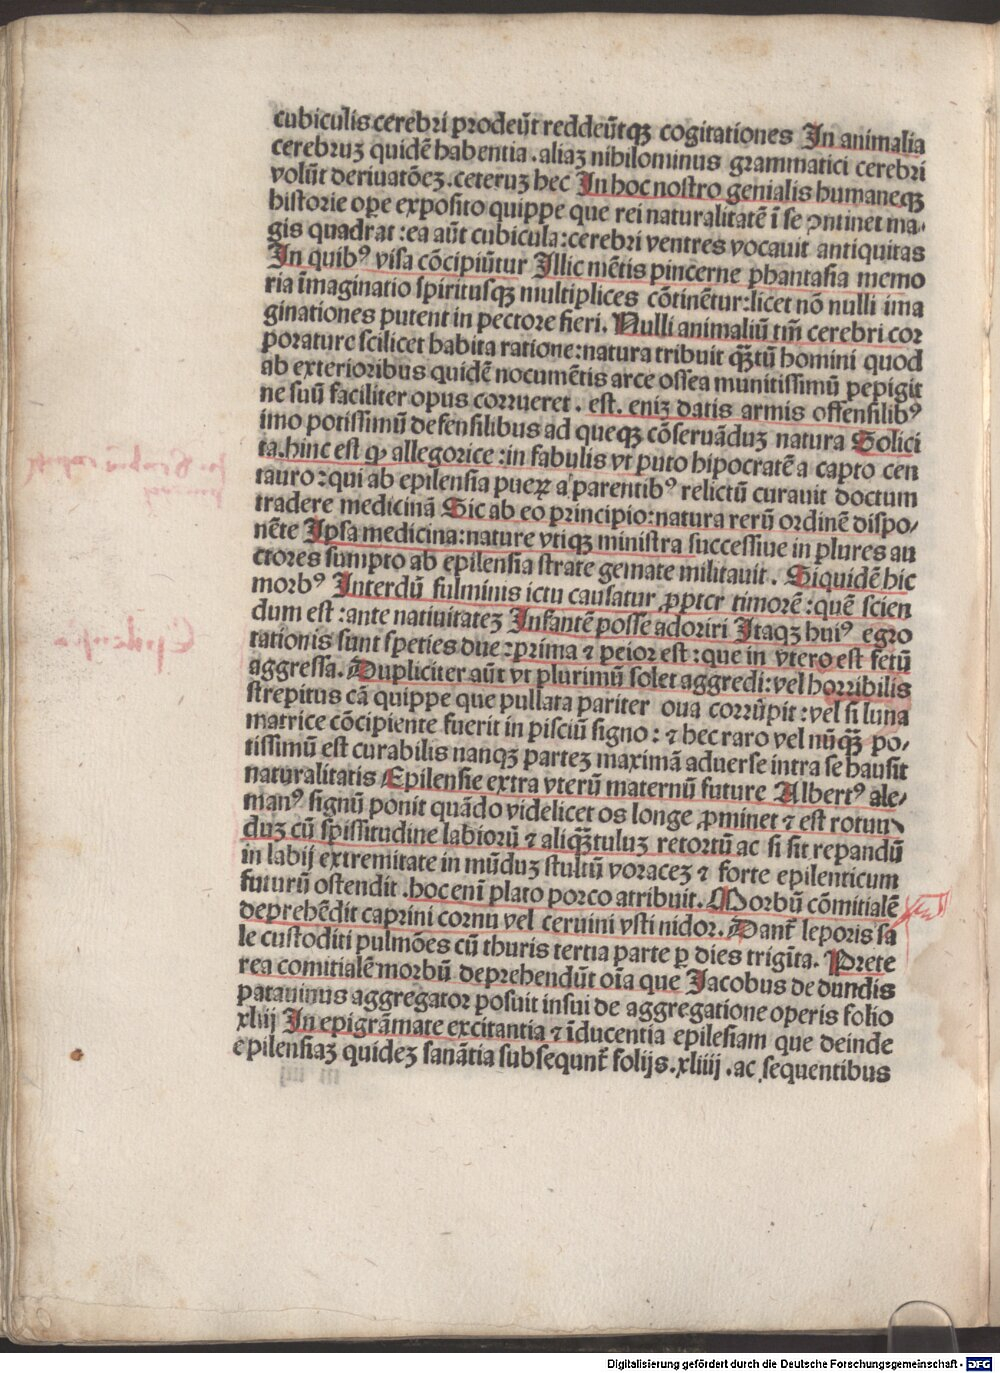 cubiculis cerebri prodeūt reddeūtqꝫ cogitationes In animalia
cerebruꝫ quidē habentia .aliaꝫ nihilominus grammatici cerebri
volūt deriuatōeꝫ .ceteruꝫ hec In hoc nostro genialis humaneqꝫ
historie oꝑe exposito quippe que rei naturalitatē ī se ꝯntinet ma⸗
gis quadrat : ea aūt cubicula : cerebri ventres vocauit antiquitas
In quibꝰ visa cōcipiūtur Illic mētis pincerne phantasia memo
ria īmaginatio spiritusqꝫ multiplices cōtinētur : licet nō nulli ima
ginationes putent in pectore fieri. Nulli animaliū tm̄ cerebri cor
porature scilicet habita ratione : natura tribuit qꝫ̄tū homini quod
ab exterioribus quidē nocumētis arce ossea munitissimū pepigit
ne suū faciliter opus corrueret . est. eniꝫ datis armis offensilibꝰ
imo potissimū defensilibus ad queqꝫ cōseruāduꝫ natura Solici
ta. hinc est ꝙ allegorice : in fabulis vt puto hipocratē a capto cen
tauro : qui ab epilensia pueꝝ a parentibꝰ relictū curauit doctum
tradere medicinā Sic ab eo principio : natura rerū ordinē dispo⸗
nēte Ipsa medicina : nature vtiqꝫ ministra successiue in plures au
ctores sumpto ab epilensia strate gemate militauit . Siquidē hic
morbꝰ Interdū fulminis ictu causatur ꝓpter timorē : quē scien
dum est : ante natiuitateꝫ Infantē posse adoriri Itaqꝫ huiꝰ egro
tationis sunt speties due : prima ⁊ peior est : que in vtero est fetū
aggressa. Dupliciter aūt vt plurimū solet aggredi : vel horribilis
strepitus cā quippe que pullata pariter oua corrūpit : vel si luna
matrice cōcipiente fuerit in pisciū signo : ⁊ hec raro vel nūqꝫ̄ po⸗
tissimū est curabilis nanqꝫ parteꝫ maximā aduerse intra se hausit
naturalitatis Epilensie extra vterū maternū future Albertꝰ ale⸗
manꝰ signū ponit quādo videlicet os longe ꝓminet ⁊ est rotun
duꝫ cū spissitudine labiorū ⁊ aliqꝫ̄tuluꝫ retortū ac si sit repandū
in labij extremitate in mūduꝫ stultū voraceꝫ ⁊ forte epilenticum
futurū ostendit .hoc enī plato porco atribuit. Morbū cōmitialē
deprehēdit caprini cornu vel ceruini vsti nidor. Dant̄ leporis sa
le custoditi pulmōes cū thuris tertia parte ꝑ dies trigīta. Prete
rea comitialē morbū deprehendūt oīa que Jacobus de dundis
patauinus aggregator posuit in sui de aggregatione operis folio
xliij In epigrāmate excitantia ⁊ īducentia epilesiam que deinde
epilensiaꝫ quideꝫ sanātia subsequnt̄ folijs .xliiij . ac sequentibus
Digitalisierung gefördert durch die Deutsche Forschungsgemeinschaft - DFG